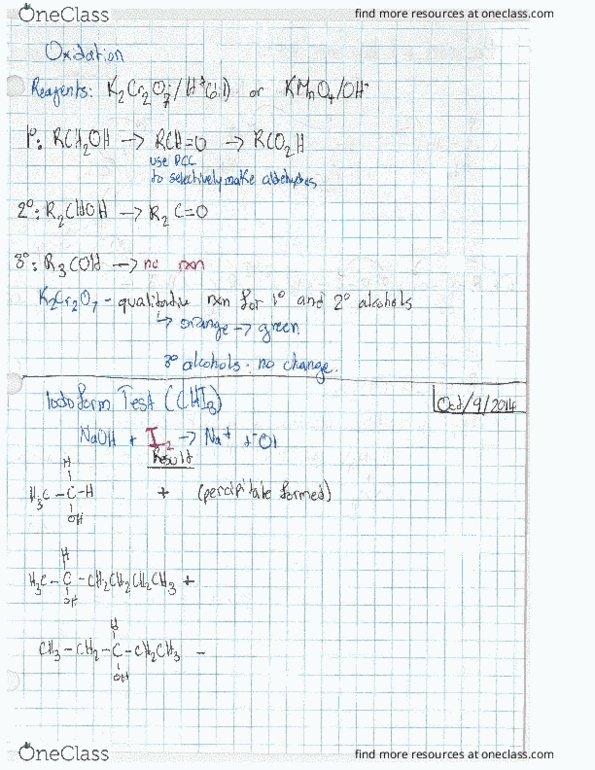 OneClass
find more resources at oneclass.com
Oxidation
Reagents: K2Cr2O7/H+(dil) or KMnO4/OH-
1°: RCH2OH → RCH=O → RCO2H
use PCC
to selectively make aldehydes
2°: R2CHOH → R2C=O
3°: R3COH → no rxn
K2Cr2O7 - qualitative rxn for 1° and 2° alcohols
↳ orange → green
3° alcohols - no change.
Iodoform Test (CHI3)
Oct/9/2014
NaOH + I2 → Na+ + -OI
Result
H
H3C-C-H + (percipitate formed)
OH
H
H3C-C-CH2CH2CH2CH3 +
OH
H
CH3-CH2-C-CH2CH3 -
OH
OneClass
find more resources at oneclass.com